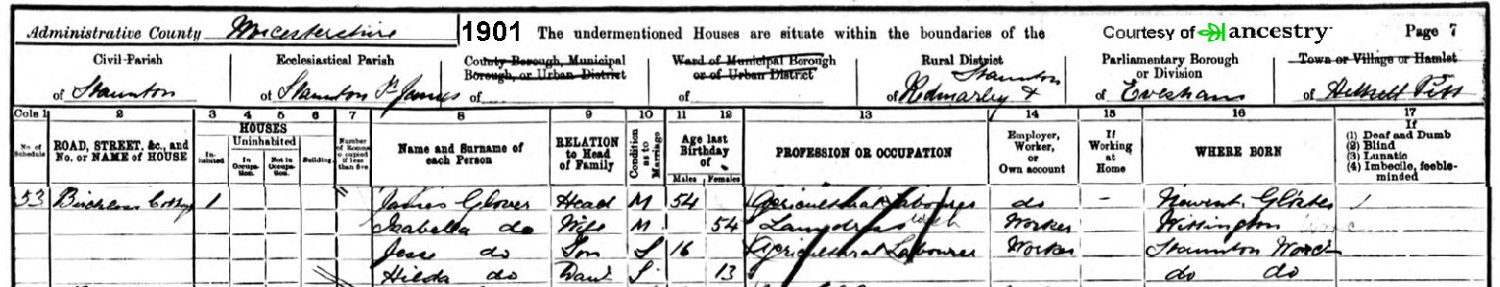 Administrative County Worcestershire 1901 The undermentioned Houses are situate within the boundaries of the Courtesy of ancestry Page 7
Civil Parish Ecclesiastical Parish County Borough, Municipal Borough, or Urban District Ward of Municipal Borough or of Urban District Rural District Parliamentary Borough or Division Town or Village or Hamlet
of Staunton of Staunton St James of of of Redmarley & Staunton of Evesham of
Cols 1 2 3 4 5 6 7 8 9 10 11 12 13 14 15 16 17
No. of Schedule ROAD, STREET, &c., and No. or NAME of HOUSE HOUSES Inhabited Uninhabited In Occupation. Not in Occupation. Building. Number of Rooms occupied if less than five Name and Surname of each Person RELATION to Head of Family Condition as to Marriage Age last Birthday of Males Females PROFESSION OR OCCUPATION Employer, Worker, or Own account If Working at Home WHERE BORN If (1) Deaf and Dumb (2) Blind (3) Lunatic (4) Imbecile, feeble-minded
53 1 James Glover Head M 54 Agricultural Labourer do - Newent Gloster
Isabella do Wife M 54 Laundress Worker
Jesse do Son S 16 Agricultural Labourer Worker Staunton Worc
Hilda do Daur S 13 do do